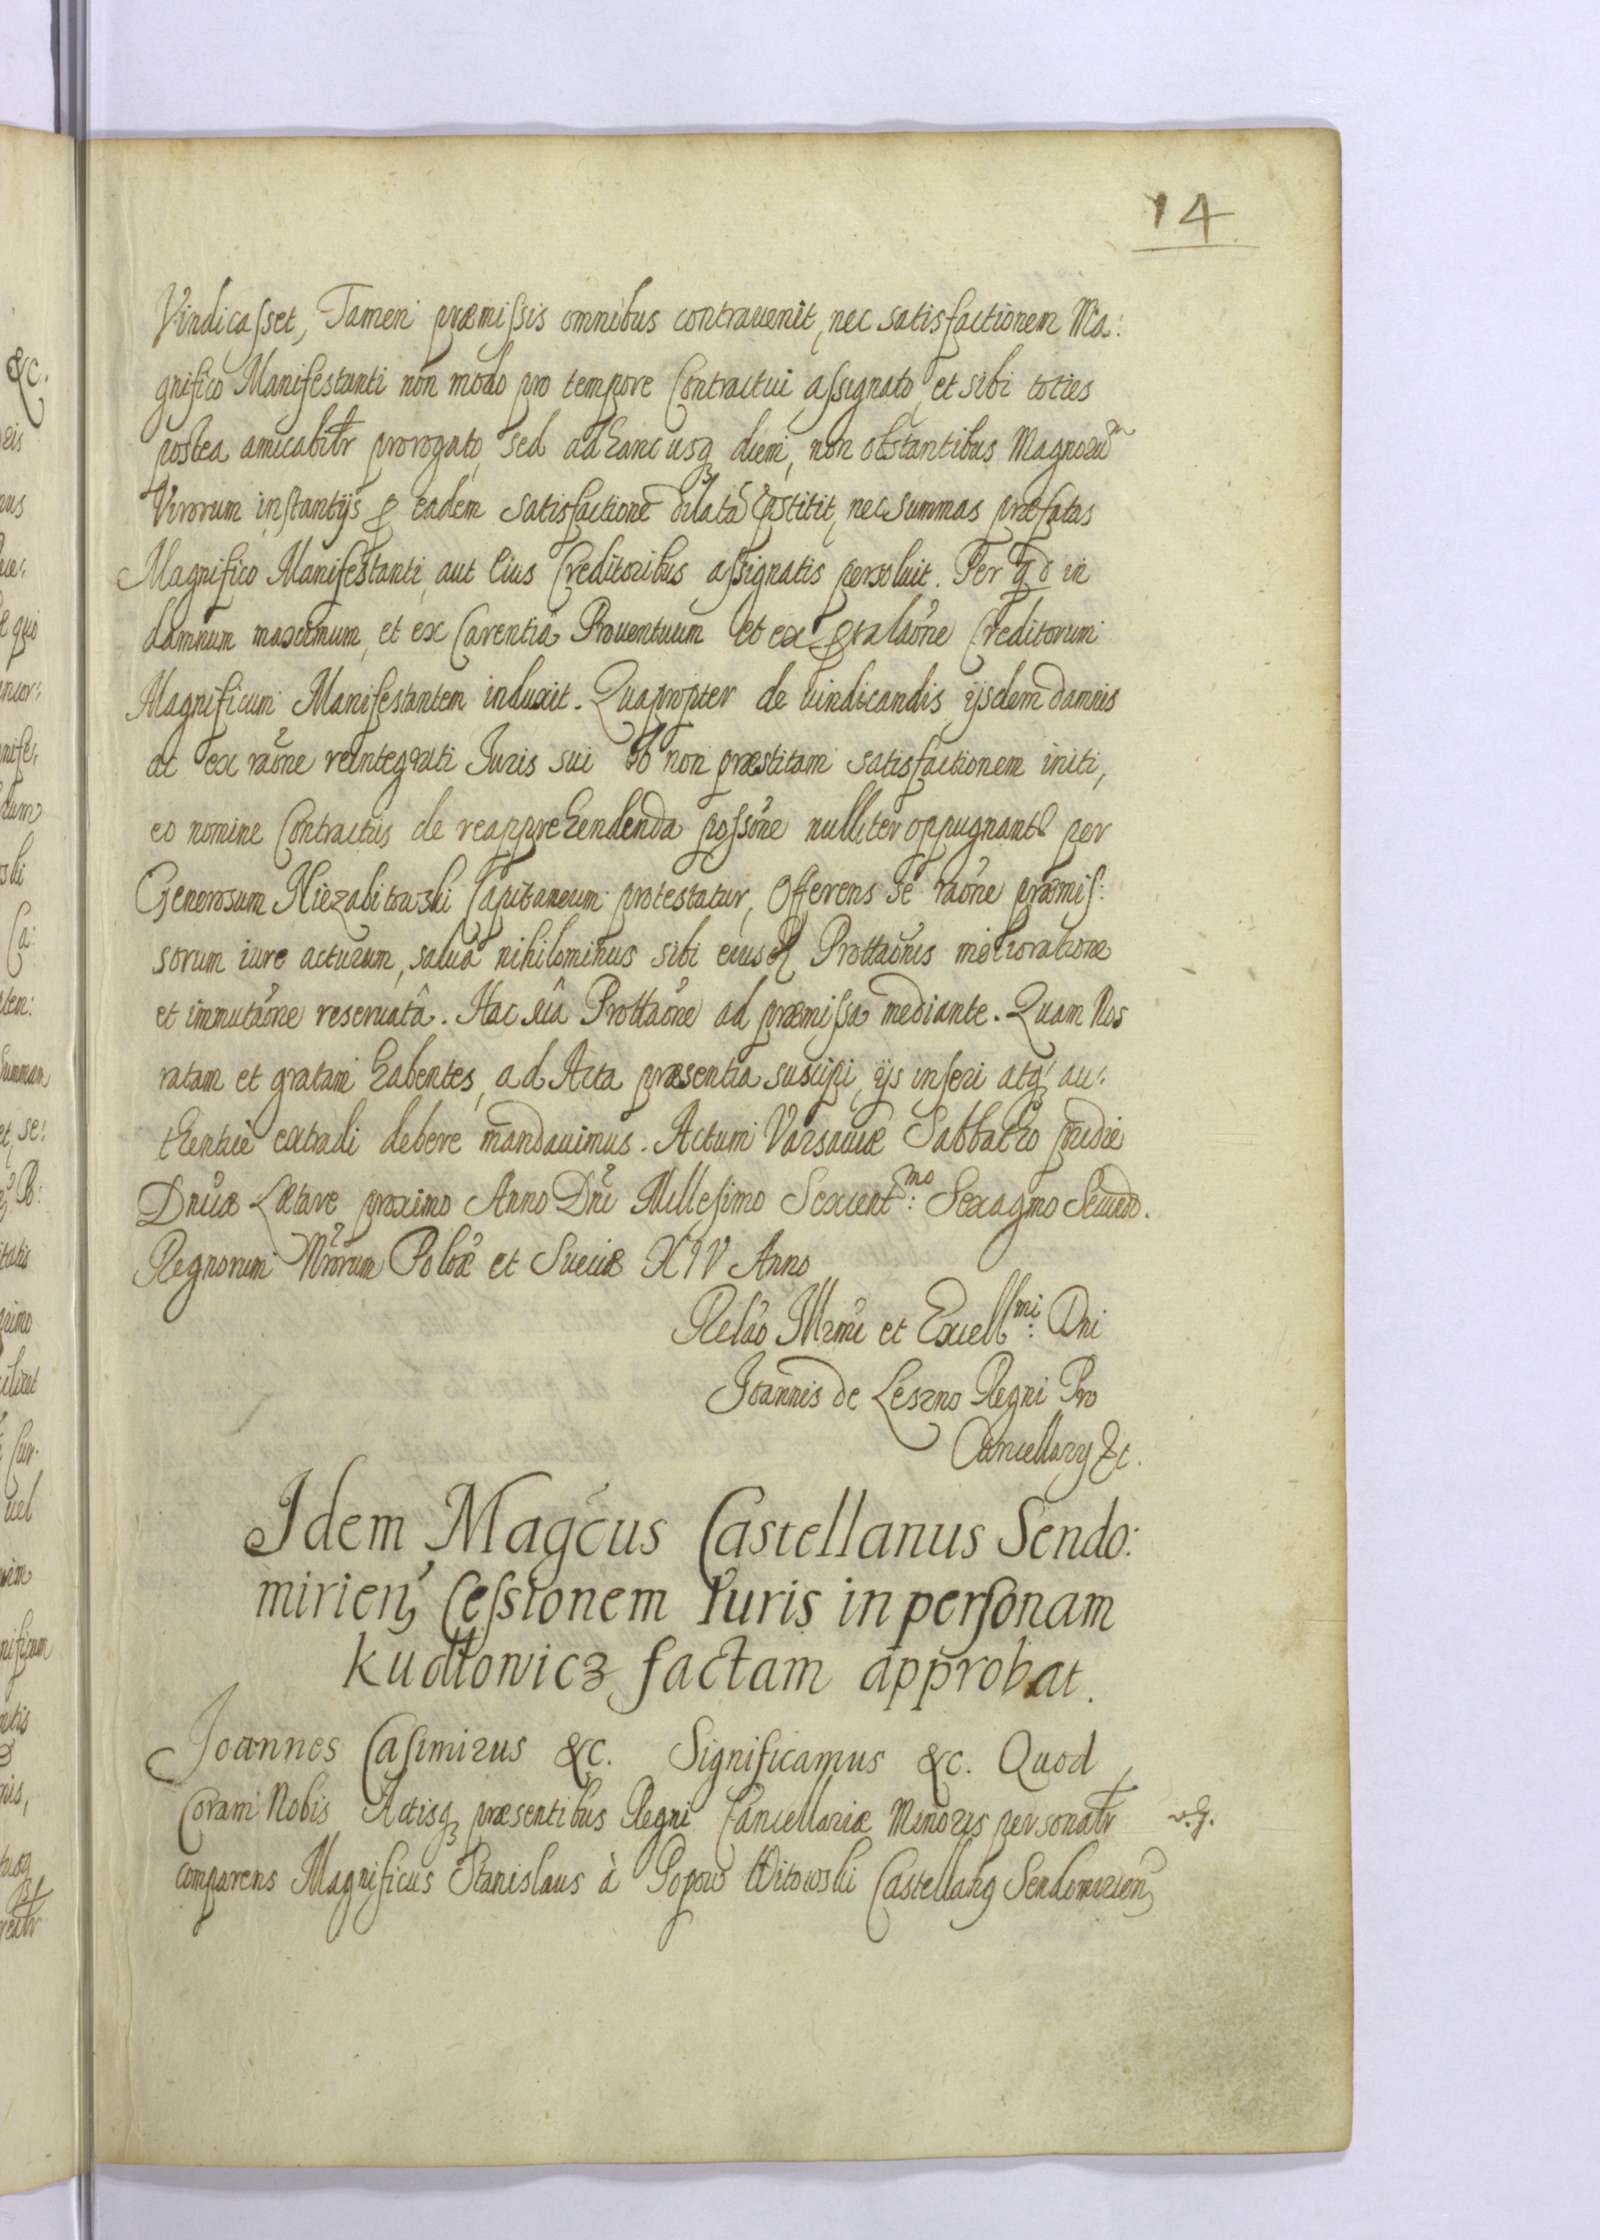 14
Vindicasset, Tamen præmissis omnibus contrauenit, nec satisfactionem Ma:
gnifico Manifestanti non modo pro tempore Contractui assignato, et sibi toties
postea amicabiltr prorogato, sed ad hanc usq diem, non obstantibus Magnorum
Virorum instantijs p eadem satisfactione dilata pstitit, nec summas præfatas
Magnifico Manifestanti, aut Eius Creditoribus assignatis persoluit. Per qd in
damnum maximum, et ex Carentia Prouentuum et ex Creditorum
Magnificum Manifestantem induxit. Quapropter de vindicandis ijsdem damnis
ac ex raone reintegrati Juris sui ob non præstitam satisfactionem initi,
eo nomine Contractus de reapprehendenda possone nulliter oppugnant per
Generosum Niezabitowski Capitaneum protestatur, Offerens se raone præmis:
sorum iure acturum, salua nihilominus sibi eiusd Prottaonis melioratione
et immutaone reseruatâ. Hac suâ Prottaone ad præmissa mediante. Quam Nos
ratam et gratam habentes, ad Acta præsentia suscipi, ijs inseri atq au:
thentice extradi debere mandauimus. Actum Varsauiæ Sabbatho pridie
Dnicæ Lætare proximo Anno Dni Millesimo Sexcentmo: Sexagmo Secundo.
Regnorum Nrorum Polōæ et Sueciæ XIV Anno
Relao Illrmi et Excellmi: Dni
Joannis de Leszno Regni Pro
Cancellarij &c.
Idem Magcus Castellanus Sendo:
mirien, Cessionem Iuris in personam
Kudłowicz factam approbat.
Joannes Casimirus &c. Significamus &c. Quod
Coram Nobis Actisq præsentibus Regni Cancellariæ Minoris personaltr
comparens Magnificus Stanislaus à Popow Witowski Castellanq Sendomirien